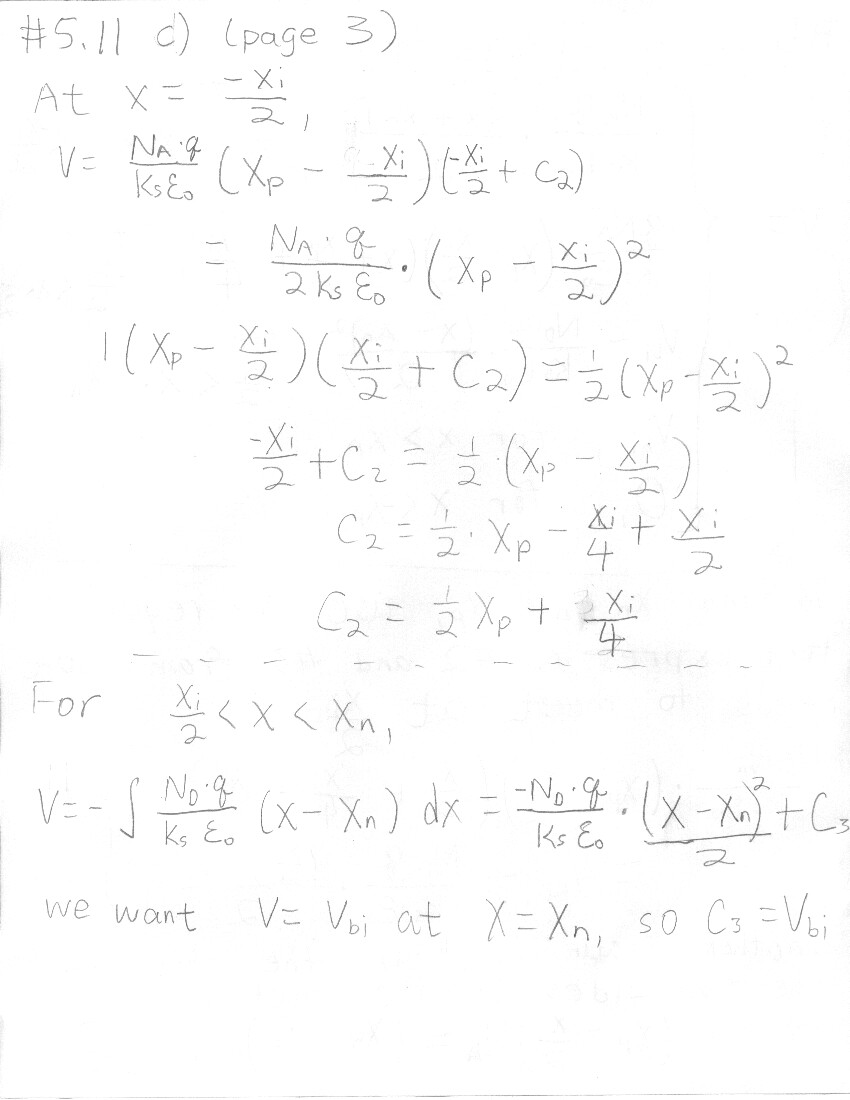 #5.11 d) (page 3)
At x = -xi/2,
V= NA·q/KsE₀ (xp - xi/2)(-xi/2 + C2)
= NA·q/2KsE₀ · (xp - xi/2)²
1(xp - xi/2)(xi/2 + C2) = 1/2(xp - xi/2)²
-xi/2 + C2 = 1/2·(xp - xi/2)
C2 = 1/2·xp - xi/4 + xi/2
C2 = 1/2 xp + xi/4
For xi/2 < x < xn,
V=-∫ ND·q/KsE₀ (x-xn) dx = -ND·q/KsE₀ · (x-xn)²/2 + C3
we want V= Vbi at x=xn, so C3 =Vbi